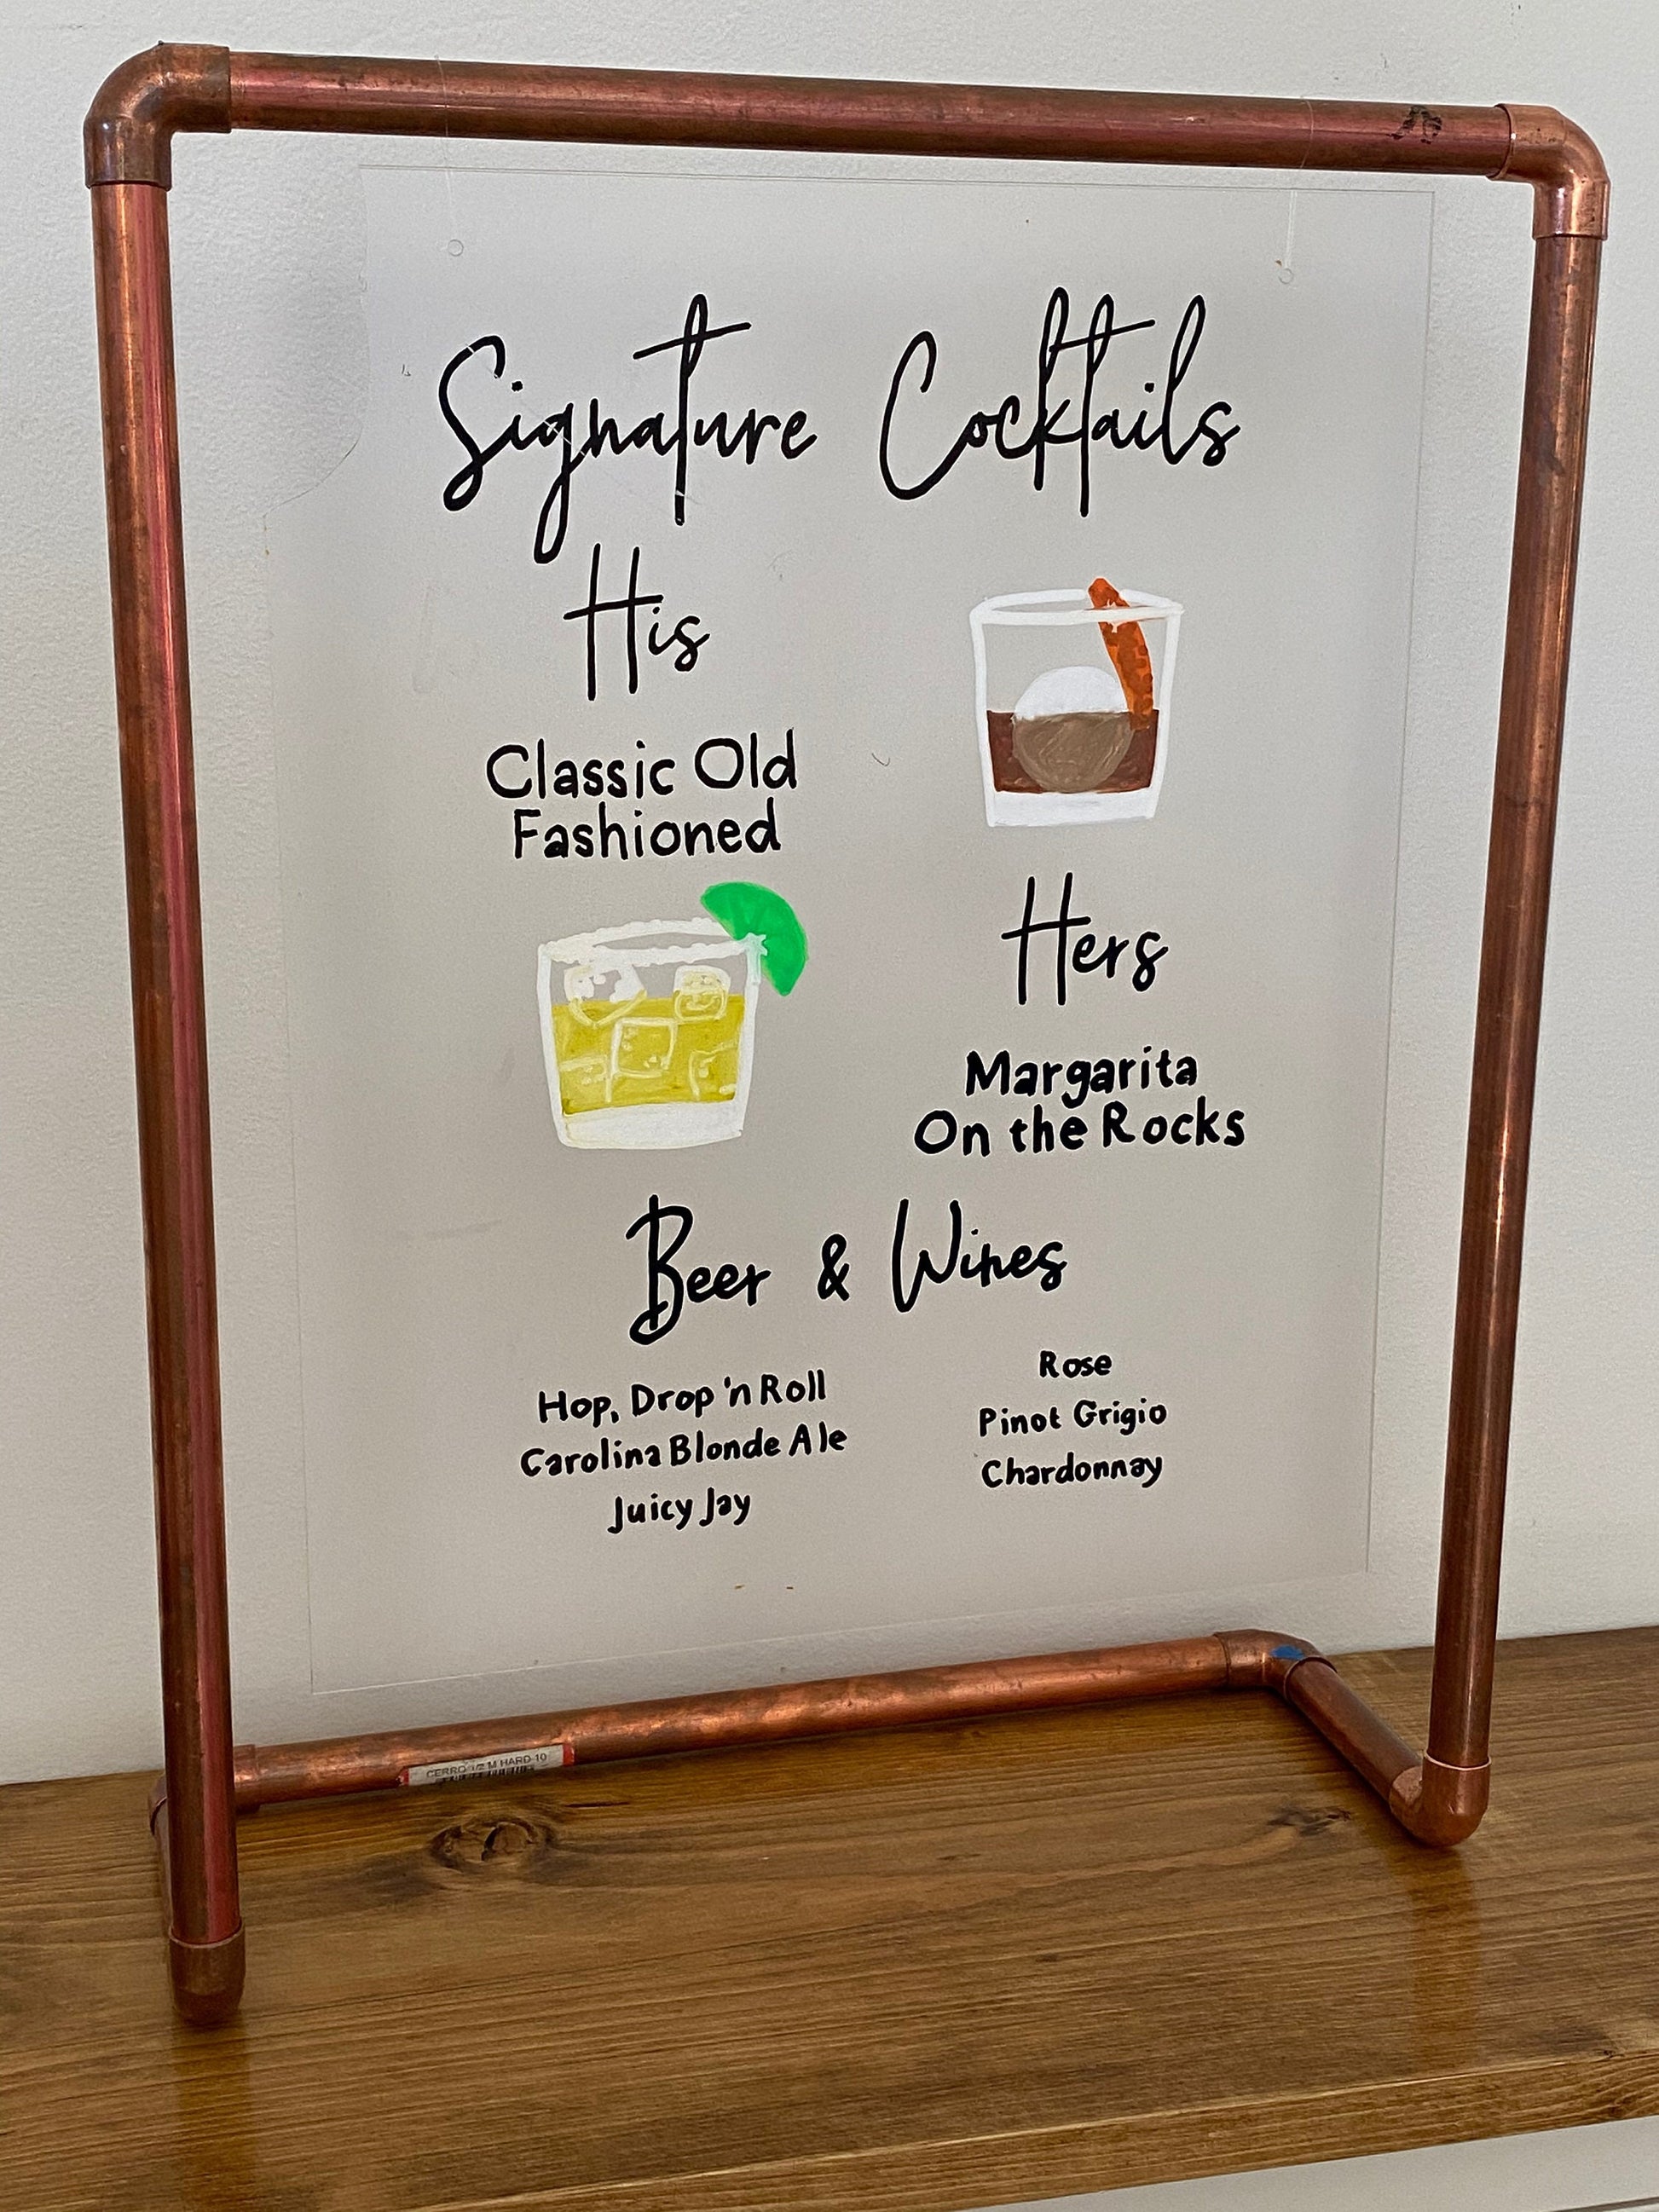 Signature Cocktails
His
Classic Old
Fashioned
Hers
Margarita
On the Rocks
Beer & Wines
Hop, Drop 'n Roll
Carolina Blonde Ale
Juicy Jay
Rose
Pinot Grigio
Chardonnay
CERRO 1/2 M HARD 10